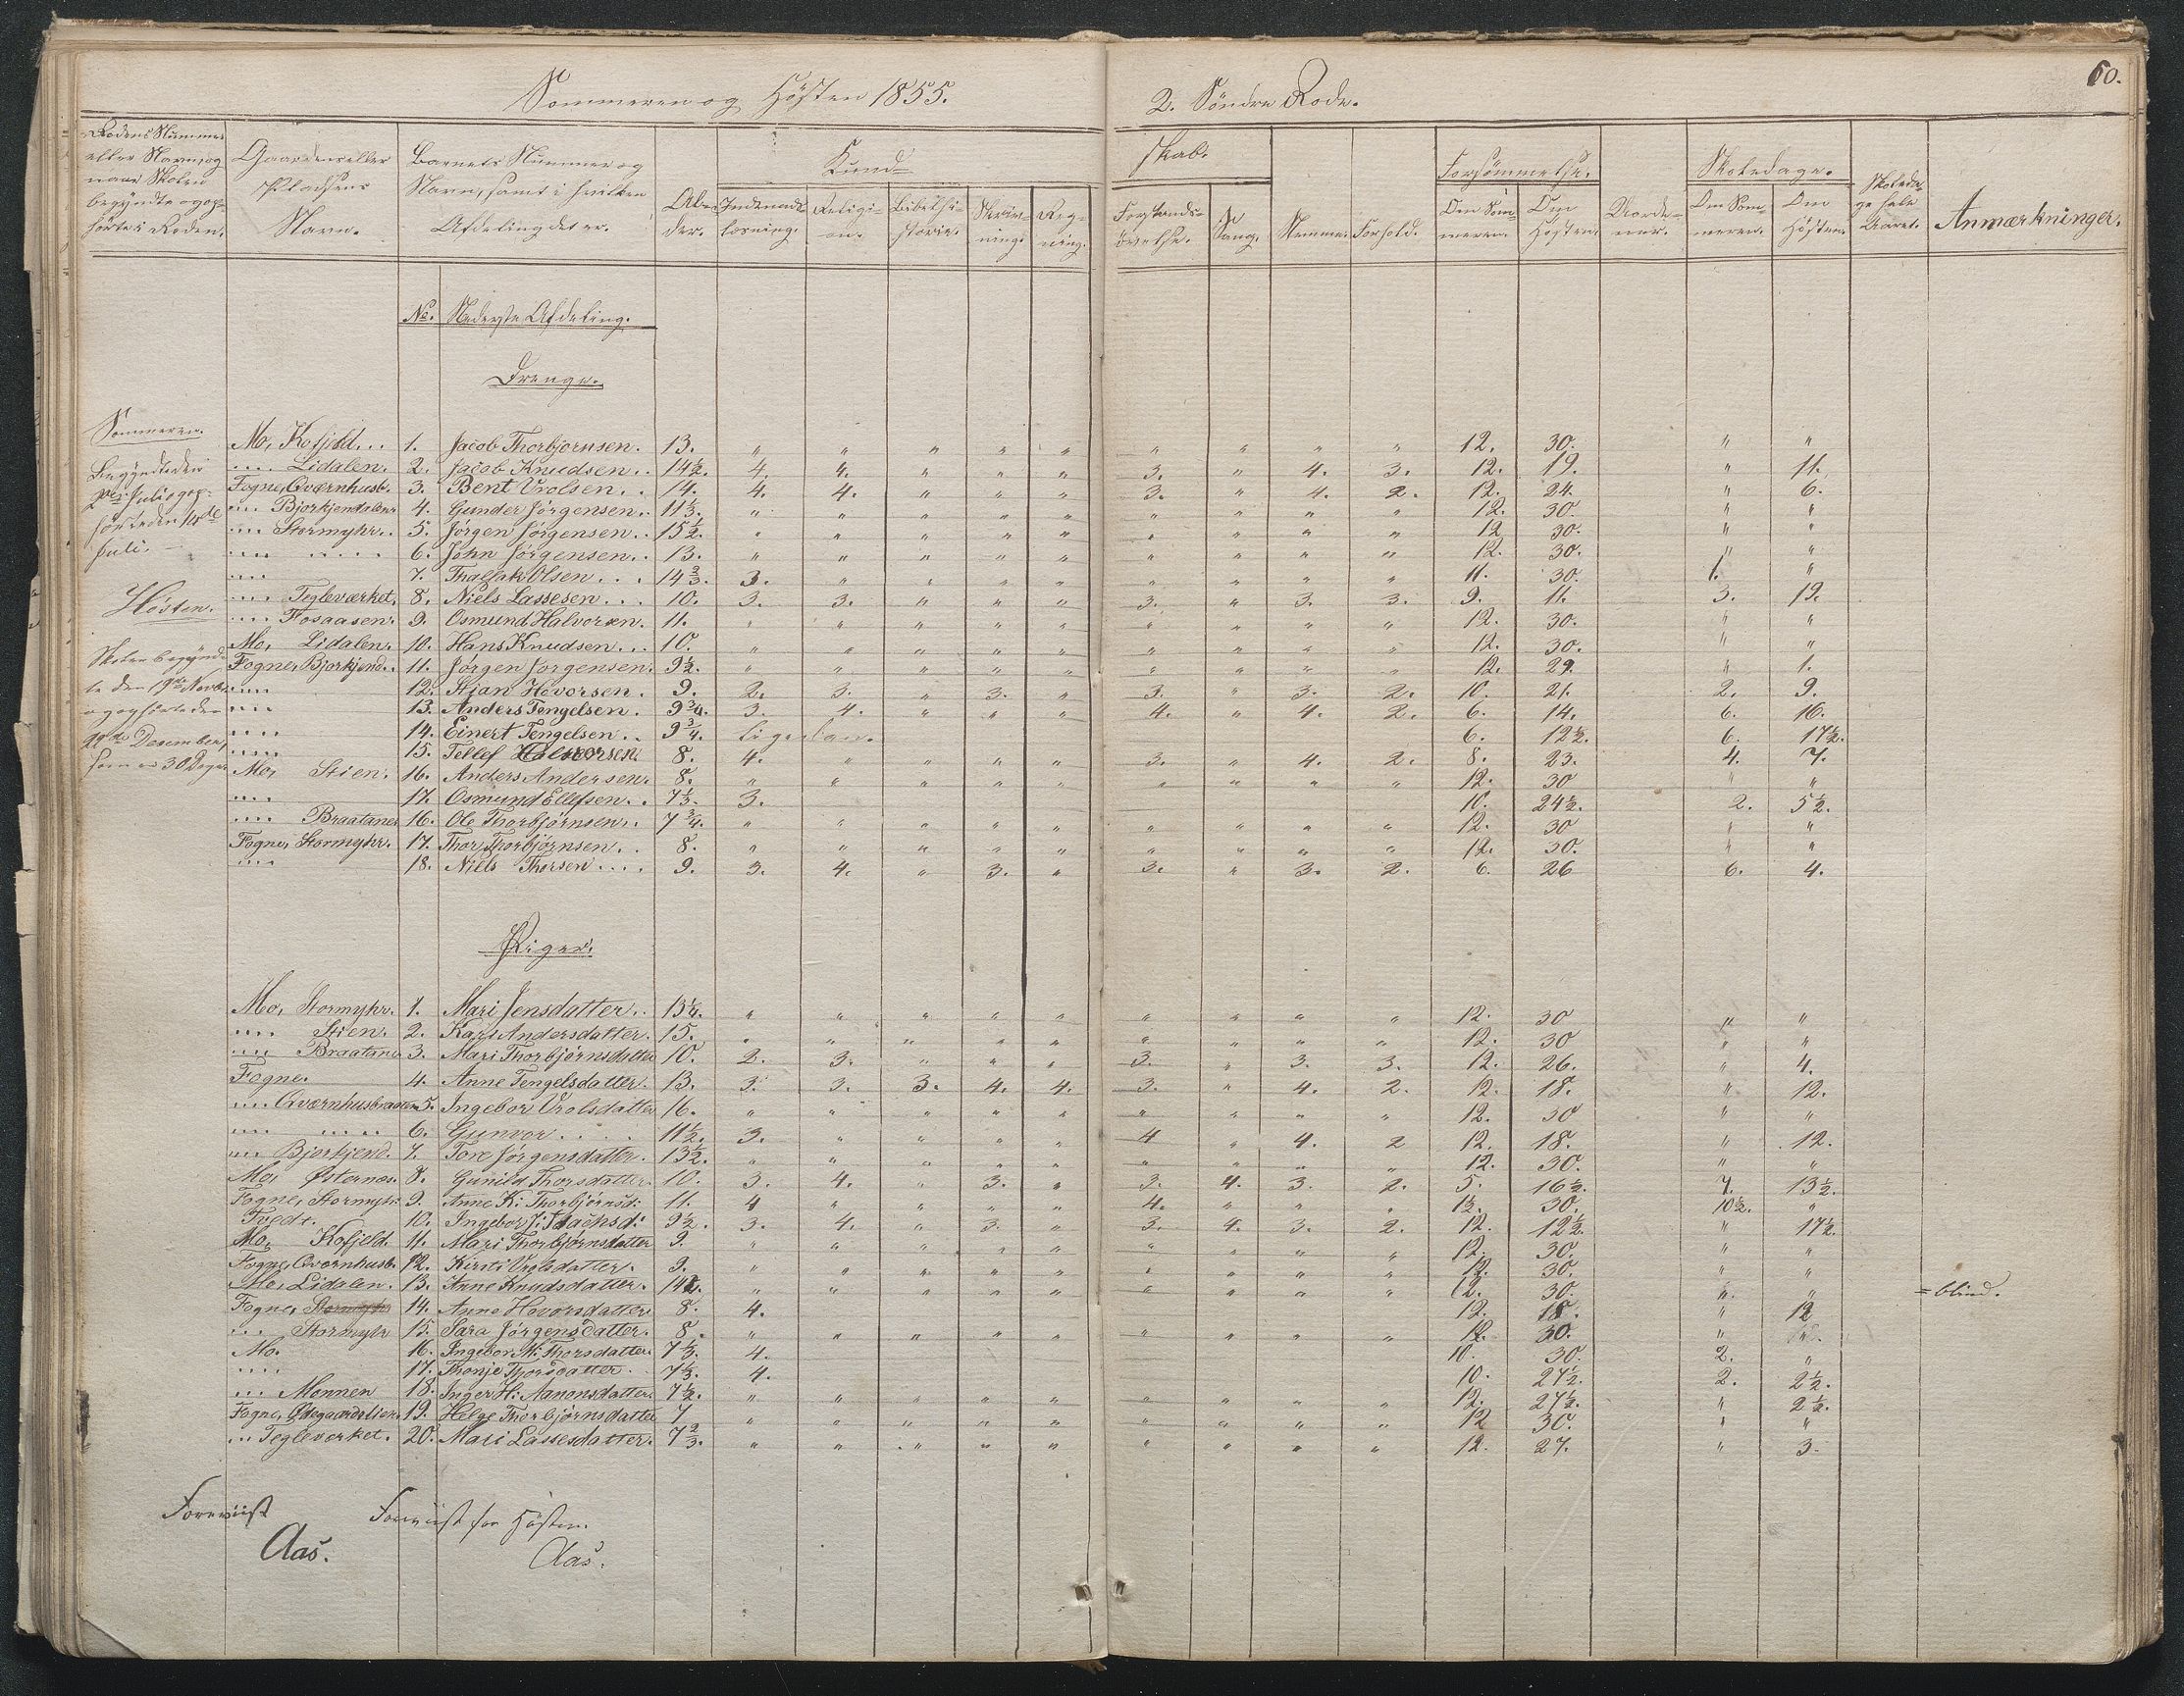 Sommeren og Hösten 1855. 2. Söndre Rode.
60.
Rodens Nummer eller Navn, og naar Skolen begyndte og ophörte i Roden. | Gaardens eller Pladsens Navn. | Barnets Nummer og Navn, samt i hvilken Afdeling det er. | Alder. | Kund- | skab. | Nemme. | Forhold. | Forsömmelse. | Skoledage. | Skoledage hele Aaret. | Anmærkninger.
Indenadslæsning. | Religion. | Bibelhistorie. | Skrivning. | Regning. | Forstandsövelse. | Sang. | Om Sommeren. | Om Hösten. | Om Sommeren. | Om Hösten.
No. Nederste Afdeling.
Drenge.
Sommeren.
Begyndte den 2den Juli og ophörte den 14de Juli.
Hösten.
Skolen begyndte den 19de Novbr. og ophörte den Desember, som er 30 Dage.
Mo, Kofjeld... 1. Jacob Thorbjornsen. 13. " " " " " " " " " 12. 30. " "
.... Lidalen. 2. Jacob Knudsen.. 14½. 4. 4. " " " 3. " 4. 3. 12. 19. " 11.
Fogne, Qværnhusb. 3. Bent Vrolsen.. 14. 4. 4. " " " 3. " 4. 2. 12. 24. " 6.
.... Bjorkjendalen 4. Gunder Jörgensen.. 11⅓. " " " " " " " " " 12. 30. " "
.... Stormyhr.. 5. Jörgen Jörgensen.. 15½. " " " " " " " " " 12 30. " "
.... .... 6. John Jörgensen.. 13. " " " " " " " " " 12. 30. " "
.... 7. Thallak Olsen... 14⅔. 3. " " " " " " " " 11. 30. 1. "
.... Tegleværket. 8. Niels Lassesen... 10. 3. 3. " " " 3. " 3. 3. 9. 11. 3. 19.
.... Fosaasen. 9. Osmund Halvorsen. 11. " " " " " " " " " 12. 30. " "
Mo, Lidalen. 10. Hans Knudsen... 10. " " " " " " " " " 12. 30. " "
Fogne, Bjorkjend.. 11. Jörgen Jorgensen. 9½. " " " " " " " " " 12. 29. " 1.
.... 12. Stian Hovorsen. 9. 2. 3. " 3. " 3. " 3. 2. 10. 21. 2. 9.
.... 13. Anders Tengelsen. 9¾. 3. 4. " " " 4. " 4. 2. 6. 14. 6. 16.
.... 14. Einert Tengelsen.. 9¾. ligedan. 6. 12½. 6. 17½.
.... 15. Tellef Halvorsen. 8. 4. " " " " 3. " 4. 2. 8. 23. 4. 7.
Mo, Stien. 16. Anders Andersen. 8. " " " " " " " " " 12. 30 " "
.... 17. Osmund Ellefsen.. 7⅓. 3. 10. 24½. 2. 5½.
.... Braatane 16. Ole Thorbjörnsen.. 7¾. " " " " " " " " " 12. 30 " "
Fogne, Stormyhr. 17. Thor Thorbjörnsen.. 8. " " " " " " " " " 12. 30. " "
.... 18. Niels Thorsen.... 9. 3. 4. " 3. " 3. " 3. 2. 6. 26 6. 4.
Piger.
Mo, Stormyhr. 1. Mari Jensdatter.. 13¼. " " " " " " " " " 12. 30 " "
.... Stien. 2. Kari Andersdatter. 15. " " " " " " " " " 12. 30 " "
.... Braatane 3. Mari Thorbjörnsdatter 10. 2. 3. " " " 3. " 3. 3. 12. 26. " 4.
Fogne. 4. Anne Tengelsdatter. 13. 3. 3. 3. 4. 4. 3. " 4. 2. 12. 18. " 12.
.... Qværnhusbraaten 5. Ingebor Vrolsdatter 16. " " " " " " " " " 12. 30 " "
.... .... 6. Gunvor.... 11½. 3. " " " " 4 " 4. 2 12. 18. " 12.
.... Bjorkjend. 7. Tore Jörgensdatter. 13½. " " " " " " " " " 12. 30. " "
Mo, Østernes. 8. Gunild Thorsdatter. 10. 3. 4. " 3. " 3. 4. 3. 2. 5. 16½. 7. 13½.
Fogne, Stormyh: 9. Anne K: Thorbjörnsd: 11. 4 " " " " 4. " " " 1½. 30. 10½. "
Tvedt. 10. Ingebor J: d: 9½. 3. 4. " 3. " 3. 4. 3. 2. 12. 12½. " 17½.
Mo, Kofjeld. 11. Mari Thorbjörnsdatter 9. " " " " " " " " " 12. 30. " "
Fogne, Qværnhusb. 12. Kirsti Vrolsdatter. 9. " " " " " " " " " 12. 30. " "
Mo, Lidalen. 13. Anne Knudsdatter. " " " " " " " " " 12. 30. " " = blind.
Fogne, 14. Anne Hovorsdatter 8. 4. 12. 18. " 12
.... Stormyhr 15. Sara Jörgensdatter. 8. " " " " " " " " " 12. 30. "
Mo. 16. Ingebor M: Thorsdatter 7⅓. 4. 10. 30. 2. "
.... 17. Thonje Thorsdatter. 7⅓. 4. 10. 27½. 2. 2½.
.... Monnen 18. Inger H: Aanonsdatter. 7½. " " " " " " " " " 12. 27½. " 2½.
Fogne, Ødegaardslien. 19. Helge Thorbjörnsdatter 7 " " " " " " " " " 12 30. " "
... Tegleverket. 20. Mari Lassesdatter. 7⅔. " " " " " " " " " 12. 27. " 3.
Foreviist Foreviist for Hösten.
Aas. Aas.